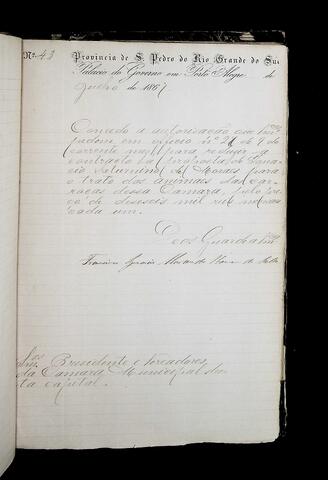 Nº 43
Provincia de S. Pedro do Rio Grande do Sul
Palacio do Governo em Porto Alegre de
Julho de 1867
Concedo a autorisação que Vmces
pedem em officio nº 21 de 9 do
corrente mez para reduzir a
contracto a proposta de Igna
cio Saturnino de Moraes para
o trato dos animaes das car
roças dessa Camara, pelo pre
ço de deseseis mil reis
cada um.
Deos Guarde a Vmces
Francisco Ignacio Marcondes Homem de Mello
Presidente e Vereadores
da Camara Municipal des
ta capital.